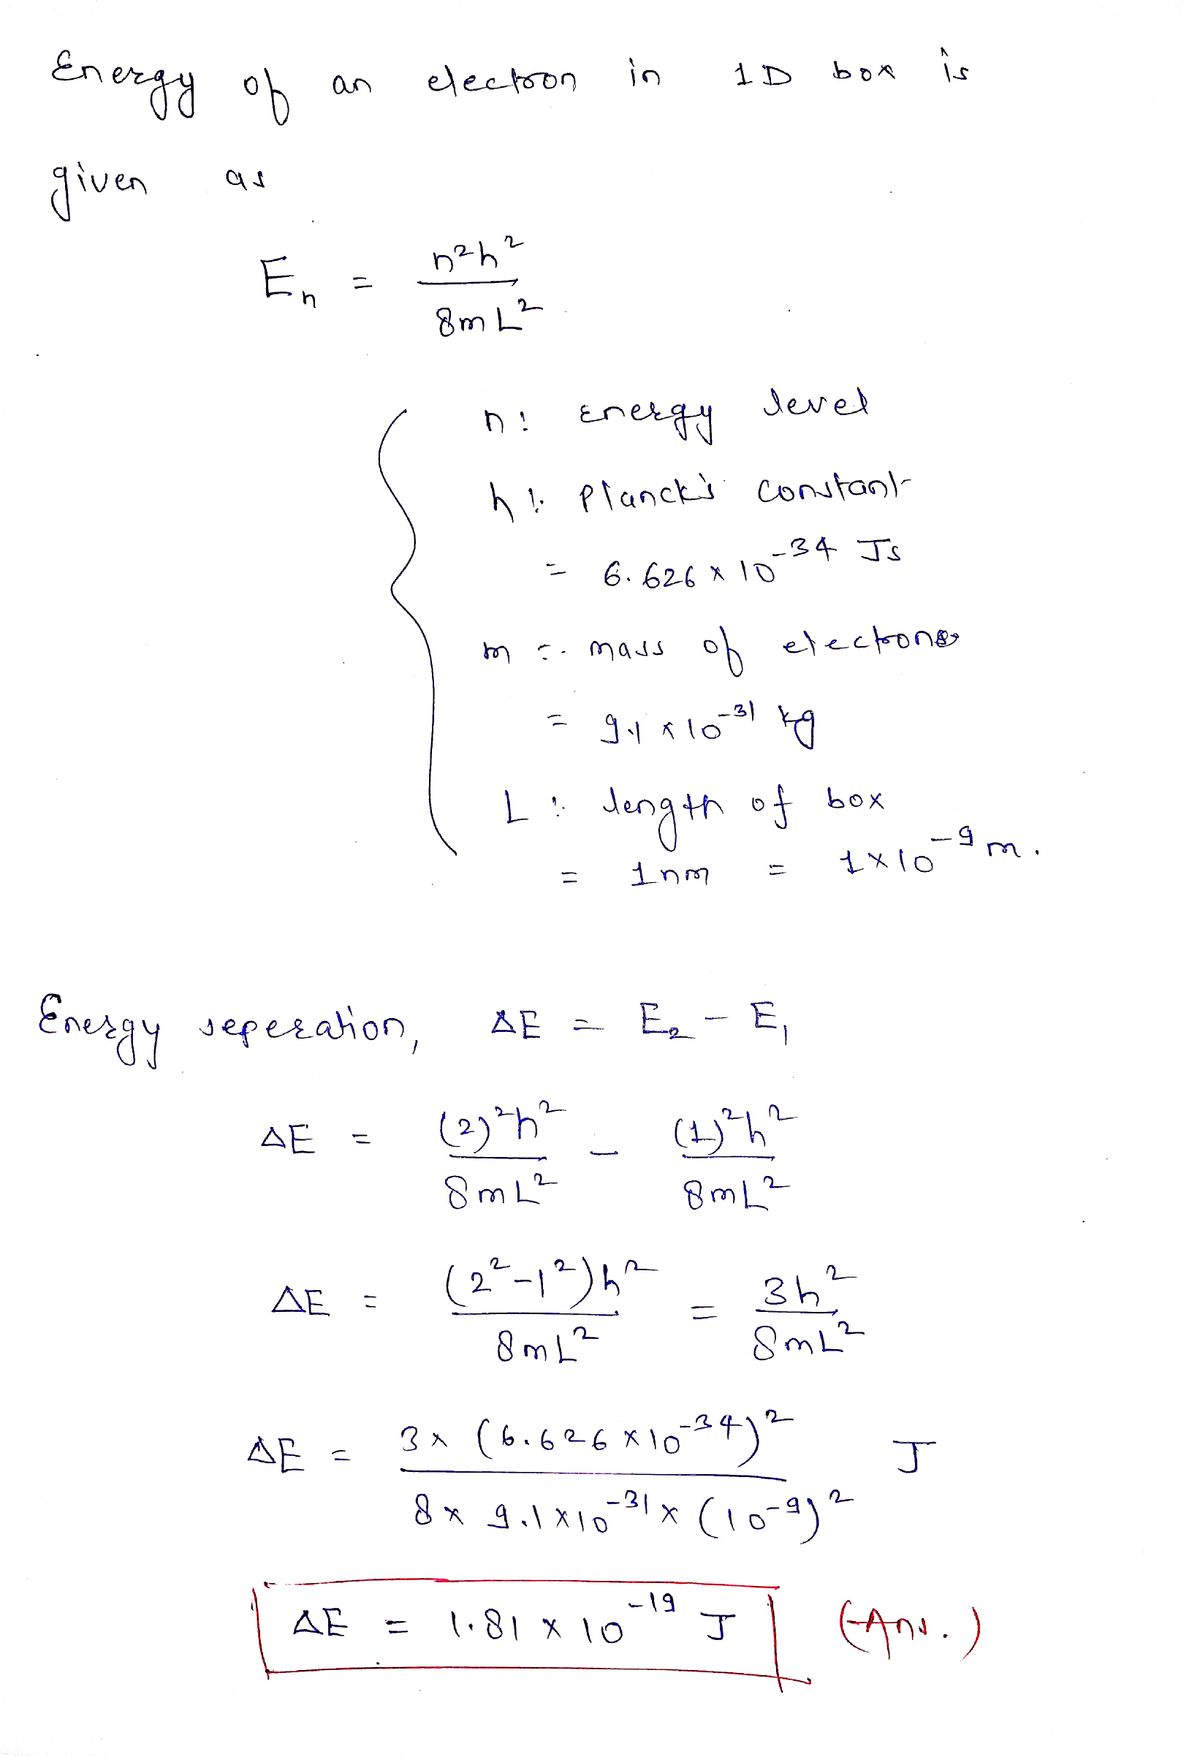 Energy of an electron in 1D box is
given as
E_n = n²h² / 8mL²
n: Energy level
h: Planck's constant
= 6.626 × 10⁻³⁴ Js
m :- mass of electrone
= 9.1 × 10⁻³¹ kg
L : length of box
= 1nm = 1×10⁻⁹ m.
Energy seperation, ΔE = E₂ - E₁
ΔE = (2)²h² / 8mL² - (1)²h² / 8mL²
ΔE = (2²-1²)h² / 8mL² = 3h² / 8mL²
ΔE = 3× (6.626 ×10⁻³⁴)² / 8× 9.1×10⁻³¹× (10⁻⁹)² J
ΔE = 1.81 × 10⁻¹⁹ J (Ans.)